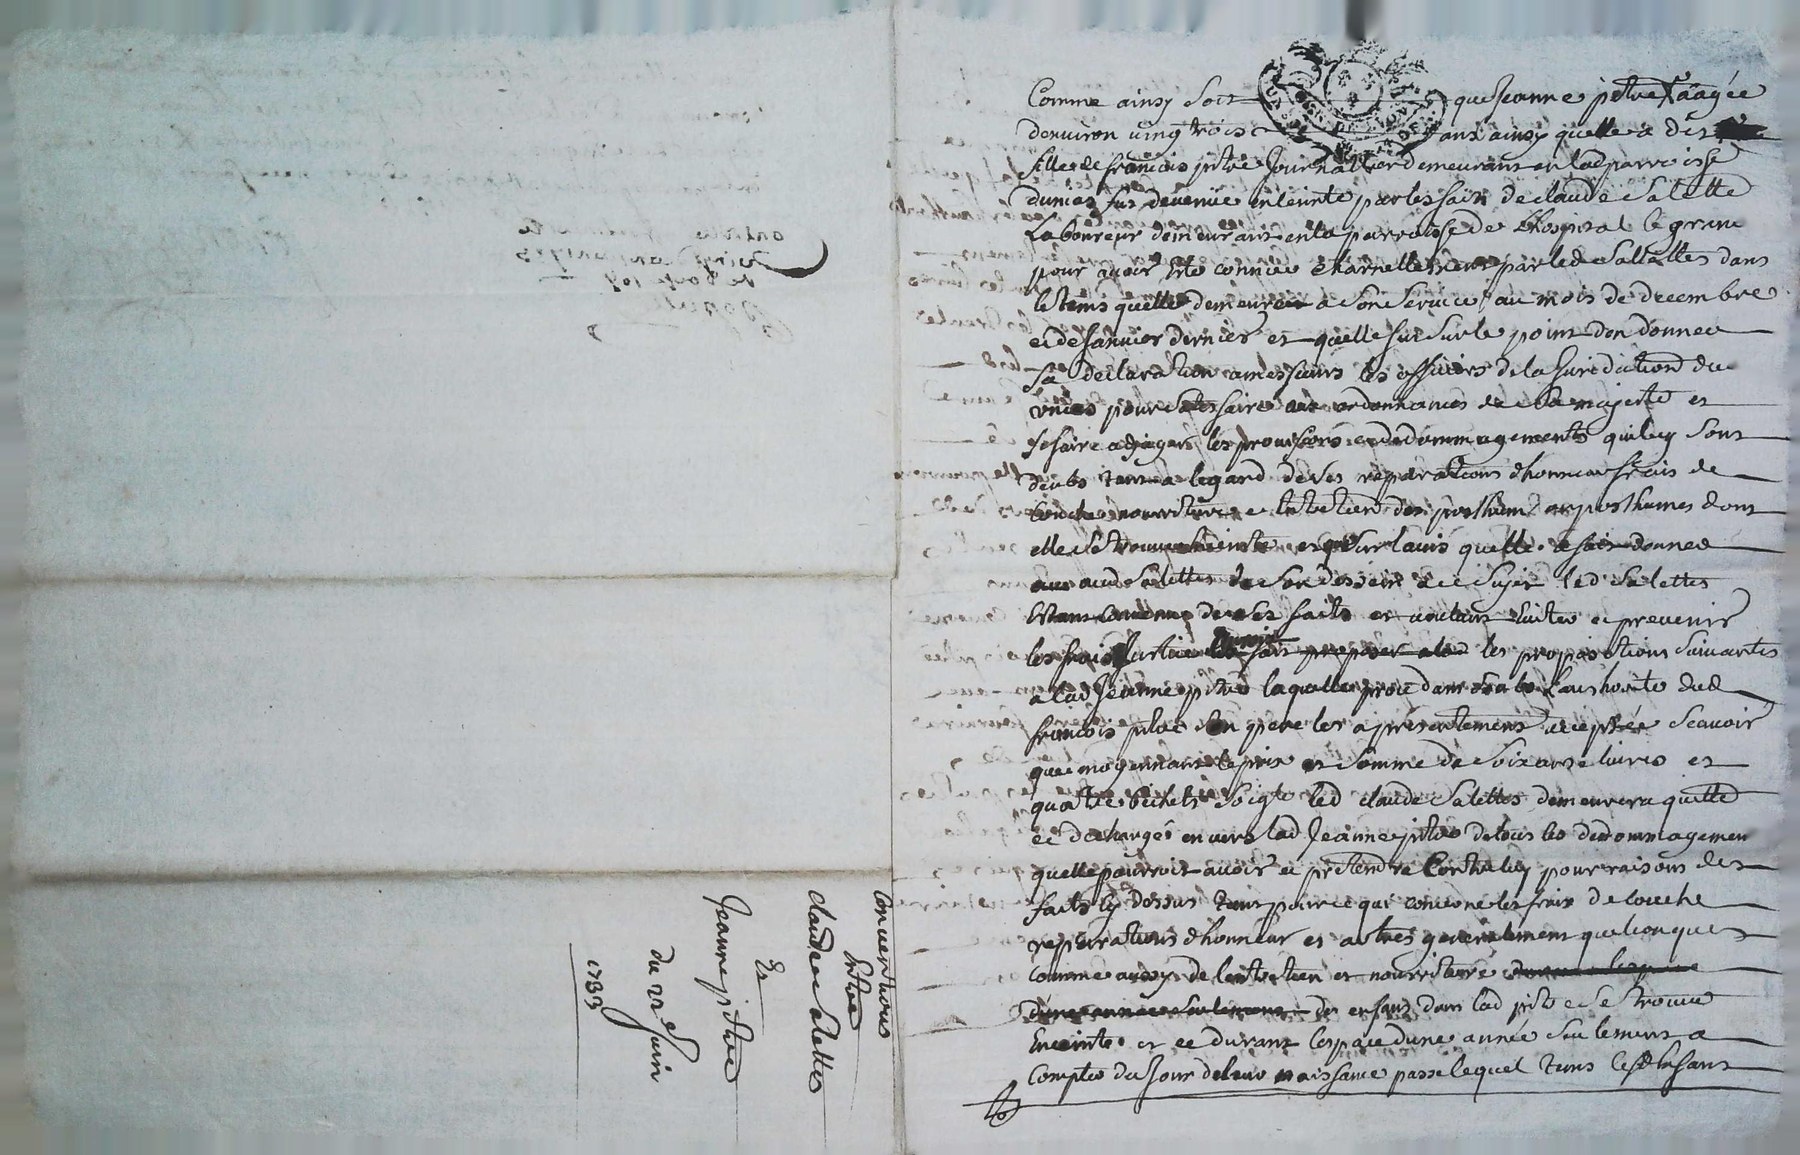 Comme ainsy soit que Jeanne pitre aagée
denviron vingt trois ans ainsy quelle a dit
fille de françois pitre Journallier demeurant en lad parroisse
dunias fut devenüe enceinte par les faits de claude Salette
Laboureur demeurant en la parroisse de Lhospital le grand
pour avoir esté connüe charnellement par led Salettes dans
le tems quelle demeuroit a son service au mois de decembre
et de Janvier dernier et quelle fut sur le point den donner
Sa declaration a messieurs les officiers de la Juridiction du
unias pour satisfaire aux ordonnances de Sa majesté et
se faire adjuger les provisions et dedommagements qui luy sont
deubs tant a legard de ses reparations dhonneur frais de
couche nourriture et entretien des posthume ou posthumes dont
elle se trouve enceinte et que sur lavis quelle a fait donner
aud Salettes de son dessein a ce sujet led Salettes
Estant convenu de ses faits et voulant eviter et prevenir
les frais Justice fait proposer les propositions suivantes
a lad Jeanne pitre laquelle procedant soubs lauthorité dud
francois pitre son pere les a presentement acceptée Scavoir
que moyennant le prix et Somme de Soixante livres et
quatre bichets Seigle led claude Salettes demeurera quitte
et dechargé envers lad Jeanne pitre de tous les dedommagemen
quelle pourroit avoir et pretendre Contre luy pour raisons des
faits cy dessus tant pour ce qui concerne les frais de couche
reparrations dhonneur et autres generalement quelconques
comme aussy de lentretien et nourriture
des enfans dont lad pitre se trouve
Enceinte et ce durant lespace dune année seulement a
compter du Jour de leur naissance passé lequel tems lesd Enfans
Conventions
Entre
claude Salettes
Et
Jeanne pitre
du 22e Juin
1733